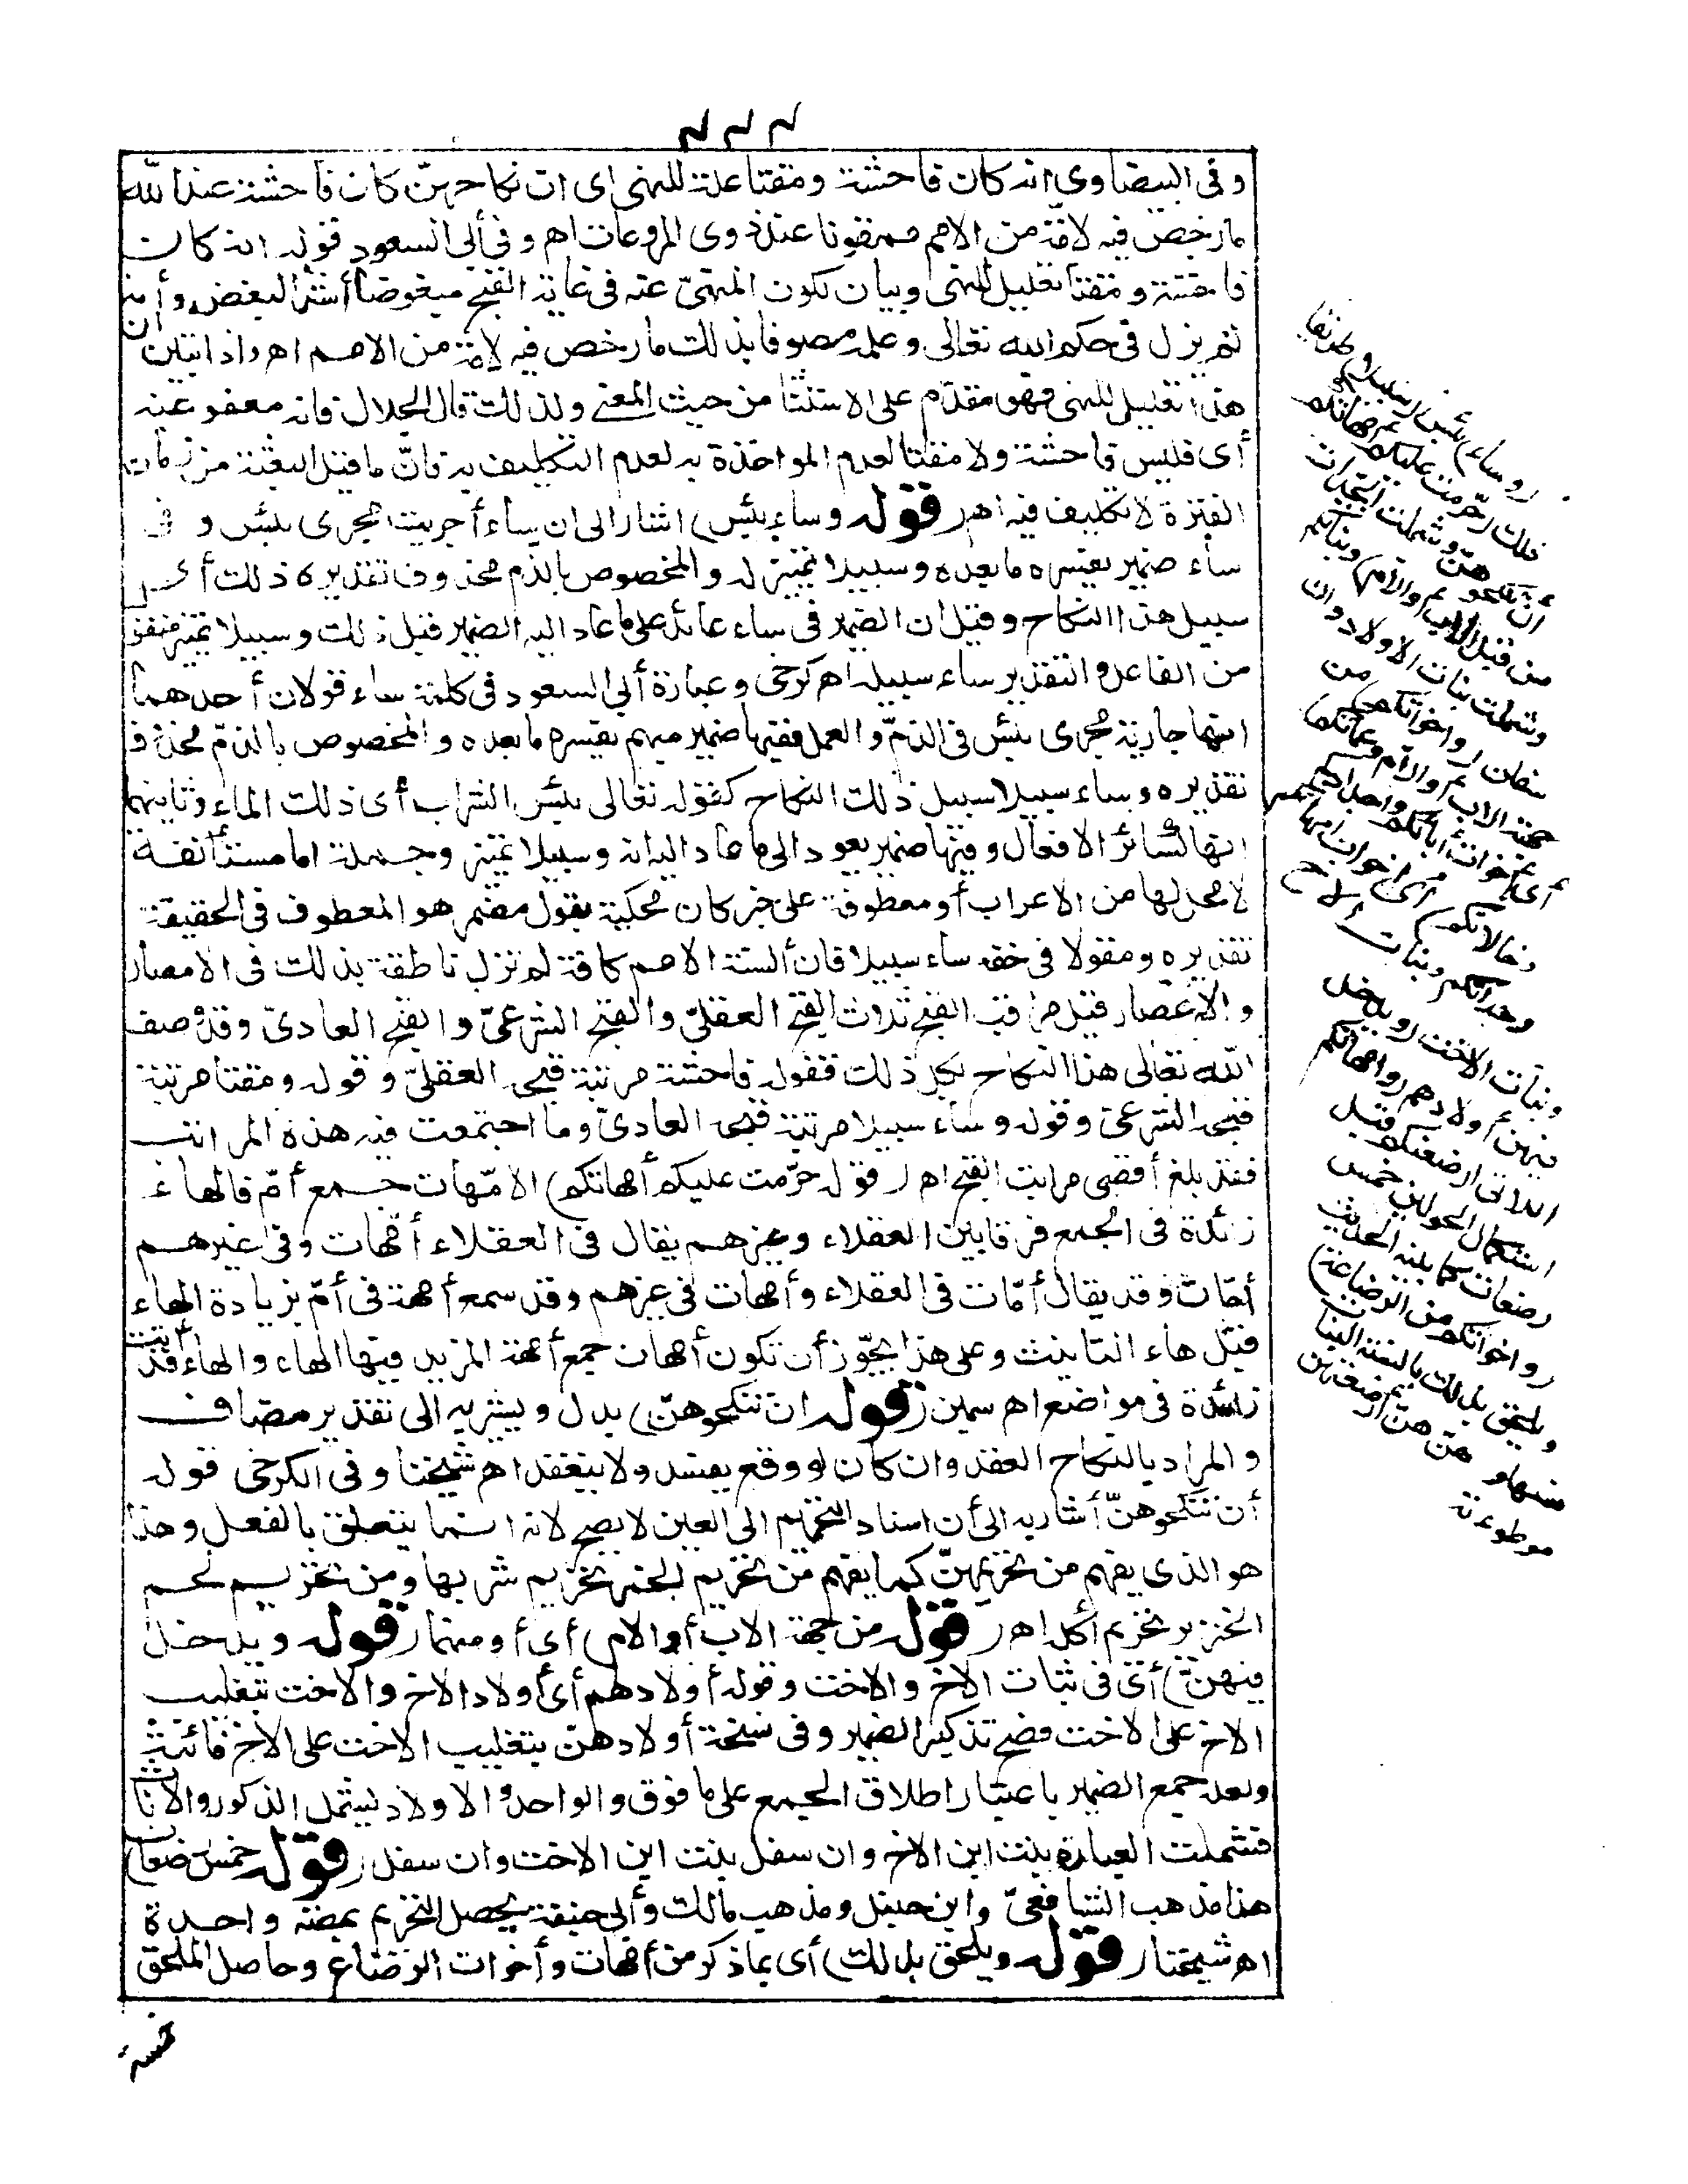 ٢٢٢
وفى البيضاوى انه كان فاحشة ومقتا علة للنهى اى ان نكاحهنّ كان فاحشة عند الله
ما رخص فيه لامّة من الامم ممقوتا عند ذوى المروءات اه وفى أبى السعود قوله انه كان
فاحشة ومقتا تعليل للنهى وبيان لكون المنهىّ عنه فى غاية القبح مبغوضا أشدّ البغض وأنه
لم يزل فى حكم الله تعالى وعلمه موصوفا بذلك ما رخص فيه لامّة من الامم اه واذا تبين ان
هذا تعليل للنهى فهو مقدّم على الاستثنا من حيث المعنى ولذلك قال الجلال فانه معفو عنه
أى فليس فاحشة ولا مقتا لعدم المواخذة به لعدم التكليف به فانّ ما قبل البعثة من زمان
الفترة لا تكليف فيه اه (قوله وساء بئس) اشار الى ان ساء أجريت مجرى بئس و فى
ساء ضمير يفسره ما بعده وسبيلا تمييز له والمخصوص بالذم محذوف تقديره ذلك أى
سبيل هذا النكاح وقيل ان الضمير فى ساء عائد على ما عاد اليه الضمير قبل ذلك وسبيلا تمييز منقول
من الفاعل والتقدير ساء سبيله اه كرخى وعبارة أبى السعود فى كلمة ساء قولان أحدهما
انها جارية مجرى بئس فى الذمّ والعمل ففيها ضمير مبهم يفسره ما بعده والمخصوص بالذمّ محذوف
تقديره وساء سبيلا سبيل ذلك النكاح كقوله تعالى بئس الشراب أى ذلك الماء وثانيهما
انها كسائر الافعال وفيها ضمير يعود الى ما عاد اليه انه وسبيلا تمييز وجملة اما مستأنفة
لا محل لها من الاعراب أو معطوفة على خبر كان محكية بقول مضمر هو المعطوف فى الحقيقة
تقديره ومقولا فى حقه ساء سبيلا فان ألسنة الامم كافة لم تزل ناطقة بذلك فى الامصار
والاعصار قيل مراتب القبح ثلاث القبح العقلىّ والقبح الشرعىّ والقبح العادىّ وقد وصف
الله تعالى هذا النكاح بكل ذلك فقوله فاحشة مرتبة قبحه العقلىّ وقوله ومقتا مرتبة
قبحه الشرعى وقوله وساء سبيلا مرتبة قبحه العادىّ وما اجتمعت فيه هذه المراتب
فقد بلغ أقصى مراتب القبح اه (قوله حرّمت عليكم أمهاتكم) الامّهات جمع أمّ فالهاء
زائدة فى الجمع فرقا بين العقلاء وغيرهم يقال فى العقلاء أمّهات وفى غيرهم
أمّات وقد يقال أمّات فى العقلاء وأمهات فى غيرهم وقد سمع أمهة فى أمّ بزيادة الهاء
قبل هاء التانيث وعلى هذا يجوّز أن تكون أمهات جمع أمهة المزيد فيها الهاء والهاء قد أتت
زائدة فى مواضع اه سمين (قوله ان تنكحوهنّ) بدل ويشير به الى تقدير مضاف
والمراد بالنكاح العقد وان كان لو وقع يفسد ولا ينعقد اه شيخنا وفى الكرخى قوله
أن تنكحوهنّ أشار به الى أن اسناد التحريم الى العين لا يصح لانه انما يتعلق بالفعل وهذا
هو الذى يفهم من تحريمهنّ كما يفهم من تحريم الخمر تحريم شربها ومن تحريم لحم
الخنزير تحريم أكله اه (قوله من جهة الاب أو الام) أى أو منهما (قوله ويدخل
فيهنّ) أى فى بنات الاخ والاخت وقوله أولادهم أى أولاد الاخ والاخت بتغليب
الاخ على الاخت فصح تذكير الضمير وفى نسخة أولادهنّ بتغليب الاخت على الاخ فانثه
وبعد جمع الضمير باعتبار اطلاق الجمع على ما فوق الواحد والاولاد يشمل الذكور والاناث
فشملت العبارة بنت ابن الاخ وان سفل بنت ابن الاخت وان سفل (قوله خمس رضعات)
هذا مذهب الشافعىّ وابن حنبل ومذهب مالك وأبى حنيفة يحصل التحريم بمصة واحدة
اه شيخنا (قوله ويلحق بذلك) أى بما ذكر من أمّهات وأخوات الرضاع وحاصل الملحق
خمسة
(وساء) بئس (سبيلا) طريقا
ذلك (حرّمت عليكم أمهاتكم)
أن تنكحوهنّ وشملت الجدّات
من قبل الاب او الام (وبناتكم)
وشملت بنات الاولاد وان
سفلن (واخواتكم) من
جهة الاب او الام (وعماتكم)
أى اخوات أبائكم وأجدادكم
(وخالاتكم) أى اخوات امهاتكم
وجداتكم (وبنات الاخ
وبنات الاخت) ويدخل
فيهن أولادهم (وامهاتكم
اللاتى ارضعنكم) قبل
استكمال الحولين خمس
رضعات كما بينه الحديث
(واخواتكم من الرضاعة)
ويلحق بذلك بالسنة البنات
منها وهنّ من ارضعتهن
موطوءته